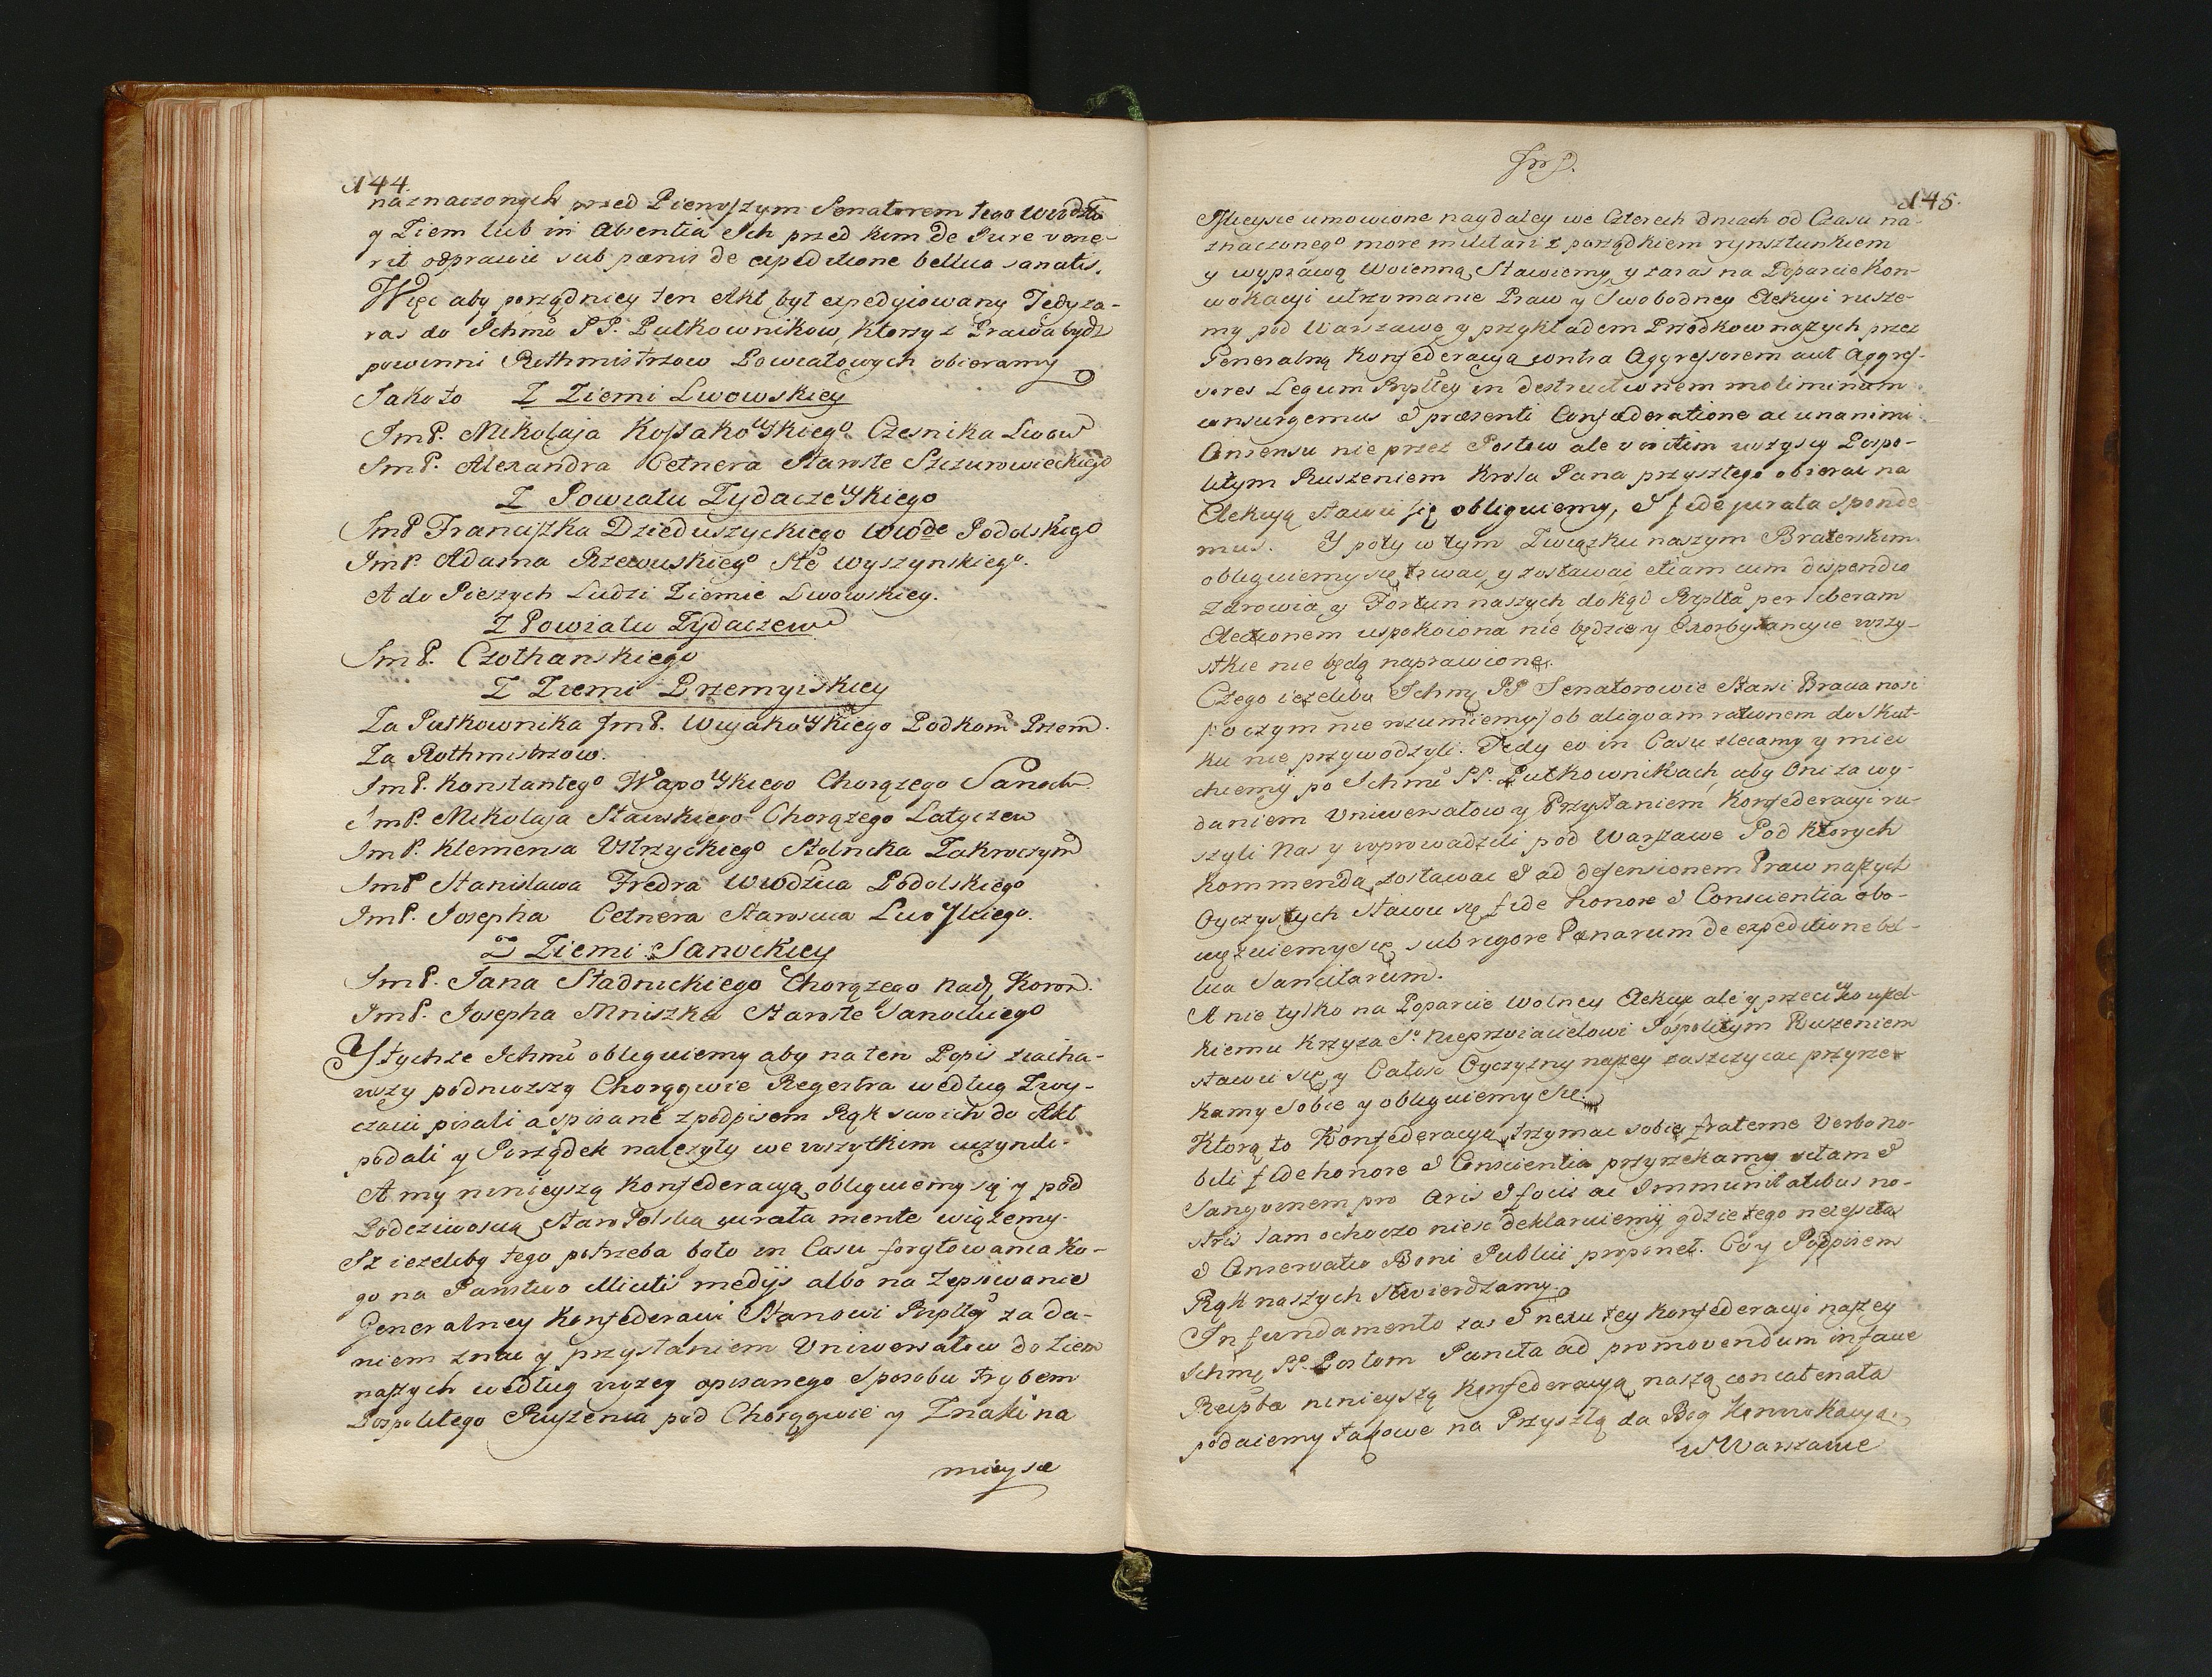 144.
naznaczonych przed Pierwszym Senatorem tego Wwdztw
y Ziem lub in Absentia Ich przed kim de Jure vene-
rit odprawić sub pænis de expeditione bellica sanatis.
Więc aby porządniey ten Akt był expedyiowany Tedy za-
raz do Ichmć PP. Pułkownikow, ktorzy z Prawa bydź
powinni Rothmistrzow Powiatowych obieramy
Jako to Z Ziemi Lwowskiey
ImP. Mikołaja Kossakowskiego Czesnika Lwow
ImP. Alexandra Cetnera Starostę Szczurowieckiego
Z Powiatu Zydaczewskiego
ImP Franciszka Dzieduszyckiego Wwde Podolskiego
ImP. Adama Rzewuskiego Stę Wyszynskiego.
A do Pieszych Ludzi Ziemie Lwowskiey.
Z Powiatu Zydaczew
ImP. Czołhanskiego
Z Ziemi Przemyiskiey
Za Pułkownika ImP. Wuyakowskiego Podkom Przem.
Za Rothmistrzow.
ImP. Konstantego Wapowskiego Chorązego Sanock
ImP. Mikołaja Stawskiego Chorązego Latyczew
ImP. Klemensa Ustrzyckiego Stolnika Zakroczym
ImP Stanisława Fredra Wwodzica Podolskiego
ImP. Josepha Cetnera Starościca Lwowskiego.
Z Ziemi Sanockiey
ImP. Jana Stadnickiego Chorązego Nad Koron.
ImP. Josepha Mniszka Starostę Sanockiego
Y tychże Ichmć obliguiemy aby na ten Popis zjacha-
wszy podniozszy Chorągwie Regestra według Zwy-
czaiu pisali a spisane z podpisem Rąk swoich do Akt
podali y Porządek nalezyty we wszytkim uczynili.
A my ninieyszą Konfederacyą obliguiemy się y pod
Poczciwością Staro Polską jurata mente wiązemy.
Iz iezeliby tego potrzeba było in Casu forytowania ko-
go na Panstwo illicitis medijs albo na Zepsowanie
Generalney Konfederacii Stanowi Rzpltey za da-
niem znac y przysłaniem Uniwersałow do Ziem
naszych według wyzey opisanego Sposobu trybem
Pospolitego Ruszenia pod Chorągwie y Znaki na
mieysce
ImP.
145.
Mieysce umowione naydaley we Czterech dniach od Czasu na-
znaczonego more militari z porządkiem rynsztunkiem
y wyprawą Woienną Stawiemy y zaraz na Poparcie Kon-
wokacyi utrzymanie Praw y Swobodney Elekcyi rusze-
my pod Warszawę y przykładem Przodkow naszych przez
Generalną Konfederacyą contra Aggressorem aut Aggres-
sores Legum Rzpltey in destructionem moliminum
consurgemus & præsenti Confæderatione ac unanimi
Consensu nie przez Posłow ale viritim wszyscy Pospo-
litym Ruszeniem Krola Pana przyszłego obierac na
Elekcyą stawic się obliguiemy, & fide jurata sponde-
mus. Y poty w tym Związku naszym Braterskim
obliguiemy się trwac y zostawac etiam cum dispendio
Zdrowia y Fortun naszych dokąd Rzplta per liberam
Electionem uspokoiona nie będzie y Exorbytancyie wszy-
stkie nie będą naprawione.
Czego iezeliby Ichmć PP Senatorowie Starsi Bracia nasi
(o czym nie rozumiemy) ob aliquam rationem do Skut-
ku nie przywodzyli. Tedy eo in Casu zlecamy y miec
chcemy po Ichmć PP. Pułkownikach, aby Oni za wy-
daniem Uniwersałow y Przysłaniem Konfederacyi ru-
szyli Nas y wprowadzili pod Warszawę Pod ktorych
Kommendą zostawac & ad defensionem Praw naszych
Oyczystych stawic się fide honore & Conscientia obo-
wązuiemy się sub rigore Pænarum de expeditione bel-
lica Sancitarum.
A nie tylko na Poparcie Wolney Elekcyi ale y przeciwko wszel-
kiemu Krzyza S. Nieprzyiacielowi Pospolitym Ruszeniem
stawic się y Całosc Oyczyzny naszey zaszczycac przyrze-
kamy Sobie y obliguiemy Się.
Ktorą to Konfederacyą trzymac sobie fraterne Verbo no-
bili fide honore & Conscientia przyrzekamy vitam &
Sangvinem pro Aris & focis ac Immunitatibus no-
stris Sam ochoczo niesc deklaruiemy gdzie tego necessitas
& Conservatio Boni Publici proponet. Co y Podpisem
Rąk naszych stwierdzamy.
In fundamento zas & nexu tey Konfederacyi naszey
Ichmć PP. Posłom Puncta ad promovendum in facie
Reipbæ ninieyszą Konfederacyą naszą concatenata
podaiemy takowe na Przyszłą da Bog Konwokacyą
w Warszawie